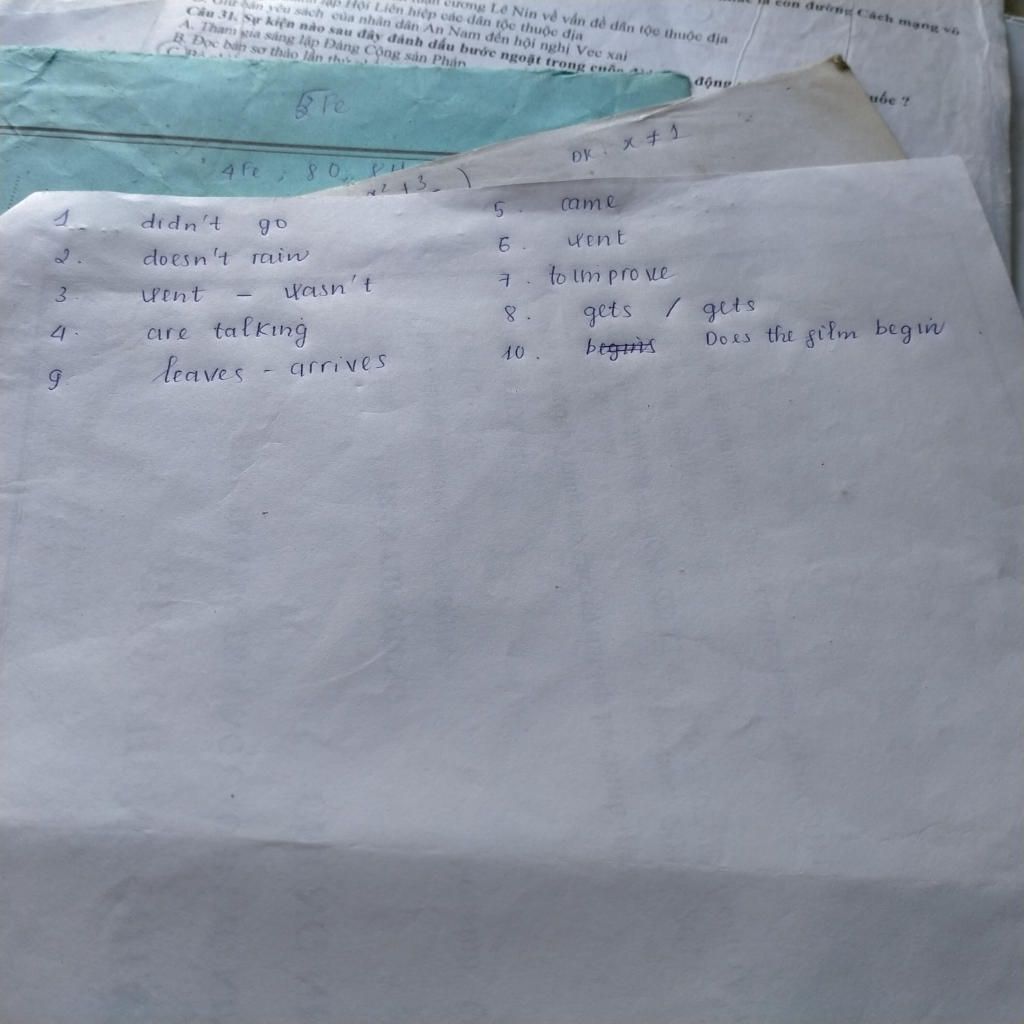 lập Hội Liên hiệp các dân tộc thuộc địa
cương Lê Nin về vấn đề dân tộc thuộc địa
là con đường Cách mạng vô
yêu sách của nhân dân An Nam đến hội nghị Vec xai
Câu 31. Sự kiện nào sau đây đánh dấu bước ngoặt trong cuộc
động
uốc ?
A. Tham gia sáng lập Đảng Cộng sản Pháp
B. Đọc bản sơ thảo lần thứ
Fe
4Fe , 8O
x² + 3
ĐK : x ≠ 1
1. didn't go
2. doesn't rain
3. went – wasn't
4. are talking
9 leaves - arrives
5. came
6. went
7. to improve
8. gets / gets
10. begins Does the film begin